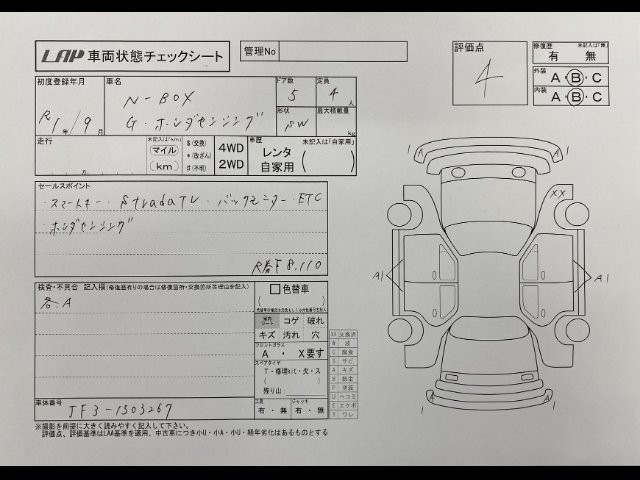 LAP 車両状態チェックシート
管理No
評価点
4
修復歴 未記入は「無」
有 無
外装 A・B・C
内装 A・B・C
初度登録年月
R1年/9月
車名
N-BOX
G・ホンダセンシング
ドア数
5
定員
4人
形状
SW
最大積載量
kg
走行
未記入は(km)
マイル
(km)
$(交換)
*(改ざん)
#(不明)
4WD
2WD
車歴 未記入は「自家用」
レンタ
自家用
セールスポイント
・スマートキー ・StradaTV ・バックモニター ・ETC
・ホンダセンシング
R券下8,110
検査・不具合 記入欄(修復歴有りの場合は修復箇所・交換箇所等理由を記入)
各A
色替車
コゲ 破れ
キズ 汚れ 穴
フロントガラス
A ・ X要す
スペアタイヤ
T・修理kit・欠・ス
残り山
工具
有・無
ジャッキ
有・無
XX 交換済
W 波
C 腐食
S サビ
A キズ
B 鈑金
P 塗装
U ヘコミ
E エクボ
X ワレ
車体番号
JF3-1303267
※撮影を前提に大きく読みやすく記入して下さい。
評価点、評価基準はLAA基準を適用。中古車につき小U・小A・小U・経年劣化はあるものとする
XX
A1
A1